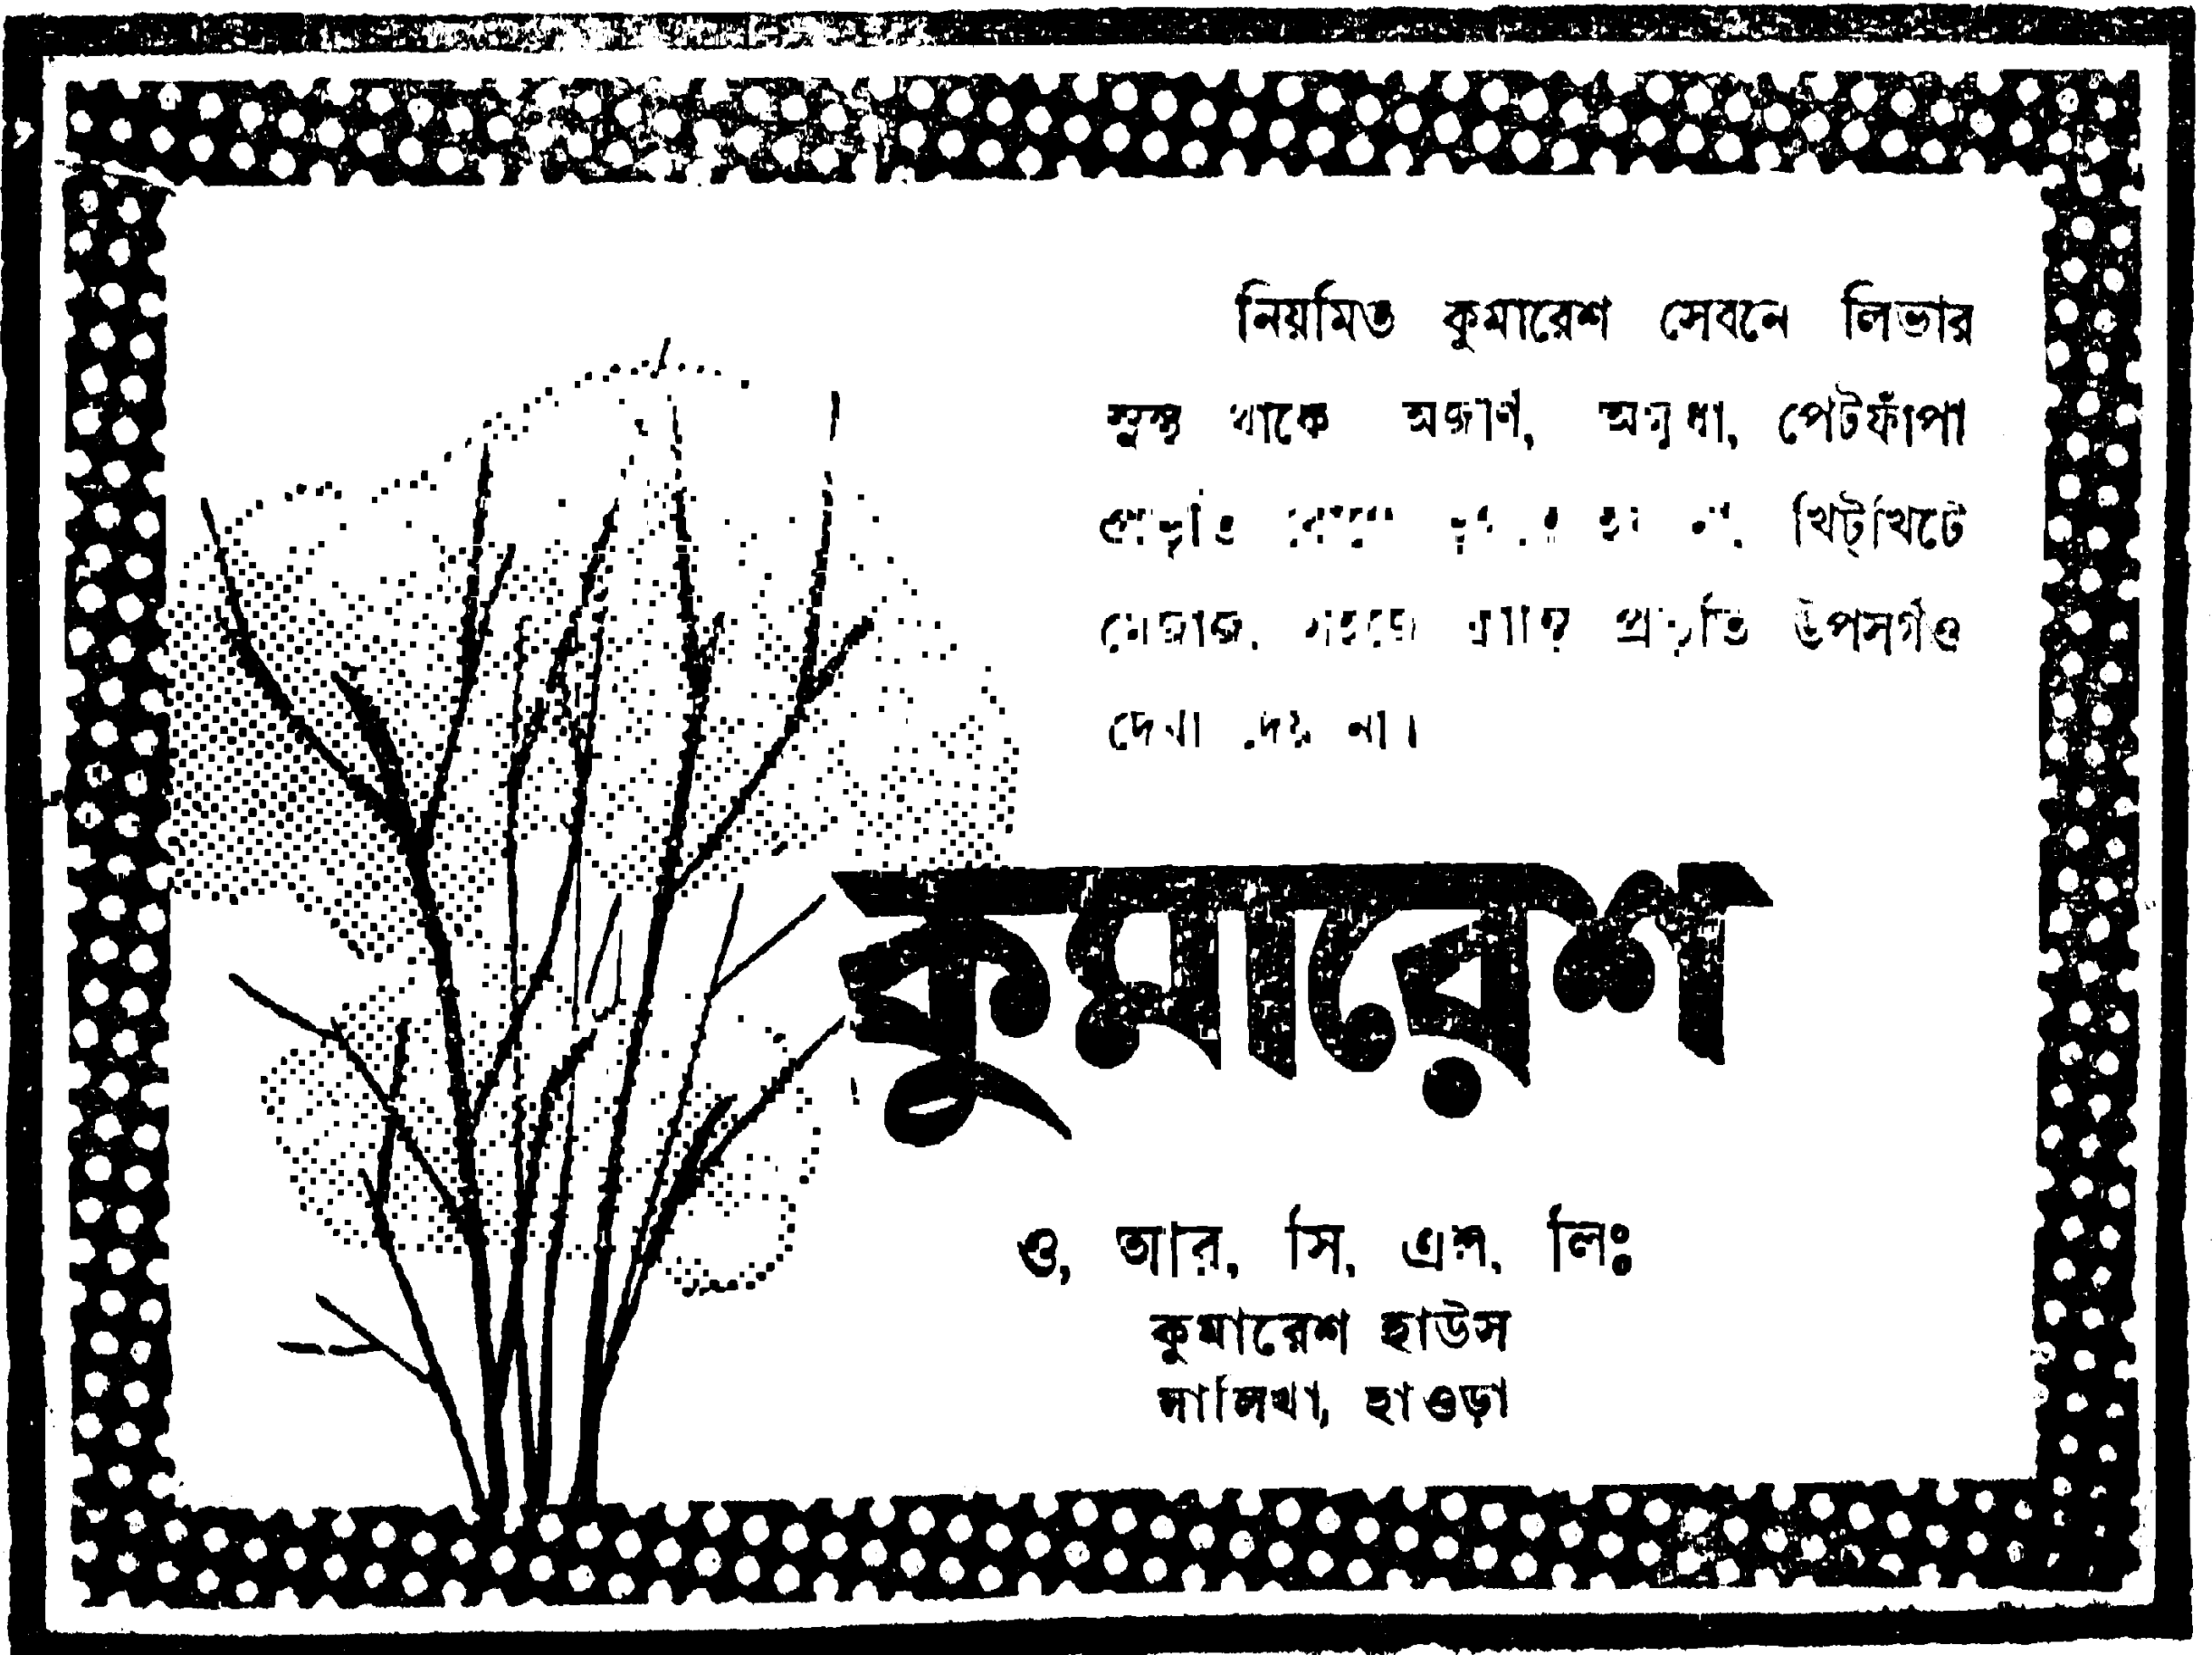 নিয়মিত কুমারেশ সেবনে লিভার
সুস্থ থাকে অজীর্ণ, অক্ষুধা, পেটফাঁপা
প্রভৃতি খিট্‌খিটে
মেজাজ, প্রভৃতি উপসর্গও
দেখা দেয় না।
কুমারেশ
ও, আর, সি, এল, লিঃ
কুমারেশ হাউস
সালিখা, হাওড়া